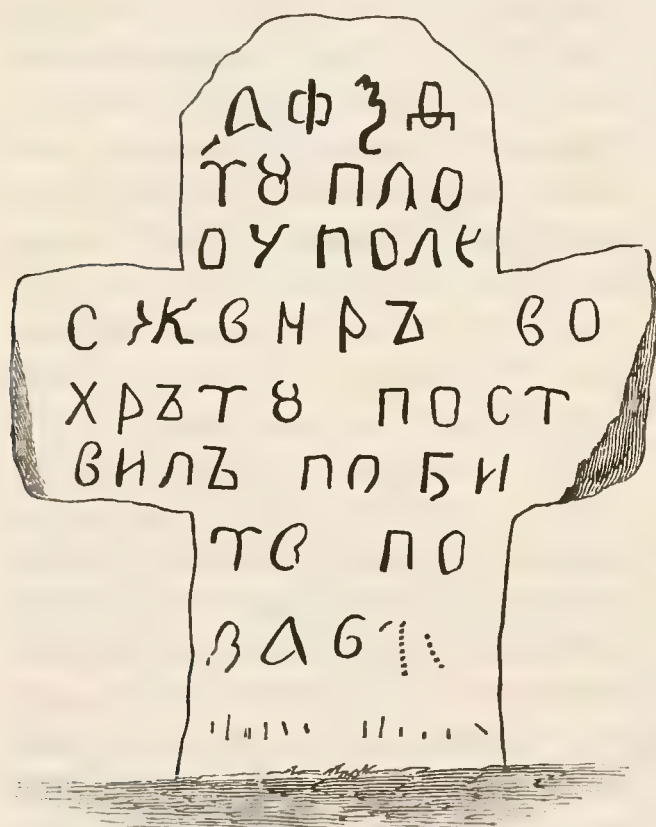 ҂АФѮД
ТꙊ ПЛО
ОУ ПОЛЕ
СЖВНРЪ ВО
ХРЪТꙊ ПОСТ
ВИЛЪ ПО БИ
ТВ ПО